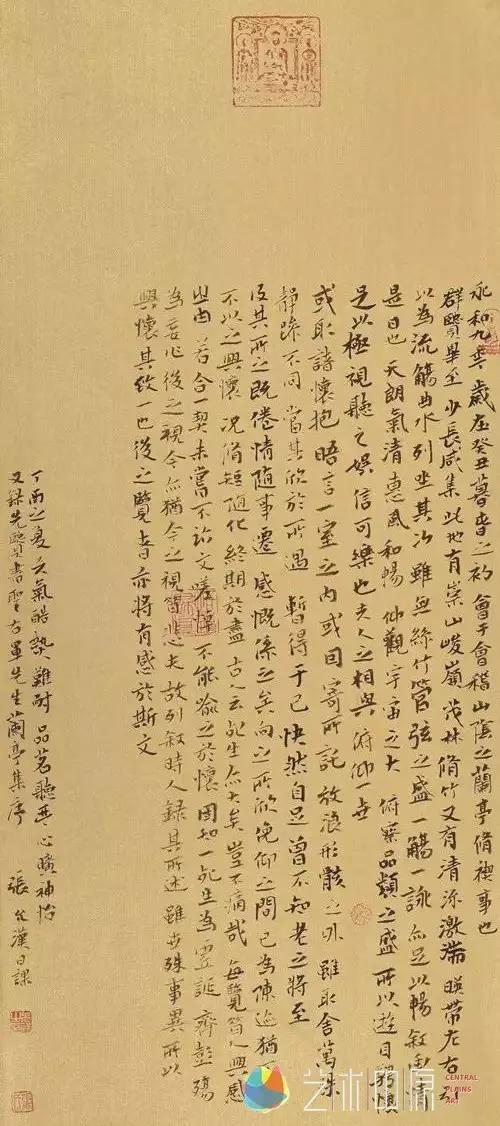 永和九年歲在癸丑暮春之初會于會稽山陰之蘭亭脩禊事也
群賢畢至少長咸集此地有崇山峻嶺茂林脩竹又有清流激湍暎帶左右引
以為流觴曲水列坐其次雖無絲竹管弦之盛一觴一詠亦足以暢敘幽情
是日也天朗氣清惠風和暢仰觀宇宙之大俯察品類之盛所以遊目騁懷
足以極視聽之娛信可樂也夫人之相與俯仰一世
或取諸懷抱晤言一室之內或因寄所託放浪形骸之外雖取舍萬殊
靜躁不同當其欣於所遇暫得于己快然自足曾不知老之將至
及其所之既倦情隨事遷感慨係之矣向之所欣俛仰之間已為陳迹猶
不以之興懷況脩短隨化終期於盡古人云死生亦大矣豈不痛哉每覽昔人興感
之由若合一契未嘗不臨文嗟悼不能喻之於懷固知一死生為虛誕齊彭殤
為妄作後之視今亦猶今之視昔悲夫故列敘時人錄其所述雖世殊事異所以
興懷其致一也後之覽者亦將有感於斯文
丁酉之夏天氣酷熱難耐品茗聽琴心曠神怡
又錄先賢書聖右軍先生蘭亭集序
張漢日課
艺术中原
CENTRAL
PLAINS
ART